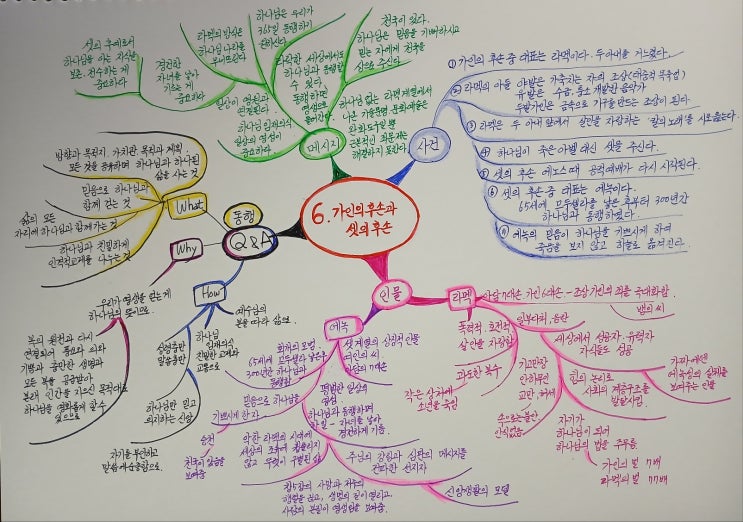 6. 가인의 후손과
셋의 후손
사건
① 가인의 후손 중 대표는 라멕이다. 두 아내를 거느렸다.
② 라멕의 아들 야발은 가축치는 자의 조상
유발은 수금, 퉁소 개발한 음악가
두발가인은 금속으로 기구를 만드는 조상이 된다
③ 라멕은 두 아내 앞에서 살인을 자랑하는 "칼의 노래"를
④ 하나님이 죽은 아벨 대신 셋을 주신다.
⑤ 셋의 후손 에노스때 공적예배가 다시 시작된다.
⑥ 셋의 후손 중 대표는 에녹이다.
65세에 므두셀라를 낳은 후부터 300년간
하나님과 동행하였다.
⑦ 에녹의 믿음이 하나님을 기쁘시게 하여
죽음을 보지 않고 하늘로 옮겨진다.
인물
라멕
아담 7대손, 가인 6대손 - 조상 가인의 죄를 극대화함.
뱀의 씨
일부다처, 음란
폭력적, 호전적
살인을 자랑함
과도한 복수
작은 상처에
소년을 죽임
세상에서 성공자·유력자
자식들도 성공
기고만장
안하무인
교만, 허세
속으로는 불안
안식없음
힘의 논리로
사회의 계층구조를
발달시킴
가짜 에덴
에녹성의 실체를
보여주는 인물
자기가
하나님이 되어
하나님의 법을 주무름
가인의 벌 7배
라멕의 벌 77배
에녹
셋 계열의 상징적 인물
여인의 씨
아담의 7대손
회개의 모범.
65세에 므두셀라 낳은 후
300년간 하나님과
동행함
평범한 일상의
영성
하나님과 동행하며
자녀를 낳아
경건하게 기름.
믿음으로 하나님을
기쁘시게 한 자
승천
천국이 있음을
보여줌
악한 라멕의 시대에
세상의 조류에 휩쓸리지
않고 뚜렷이 구별된 삶
주님의 강림과 심판의 메시지를
전파한 선지자
신앙생활의 모델
창5장의 사망과 저주의
행렬을 끊고, 생명의 길이 열리고
사람의 본질이 영생임을 보여줌
동행
Q&A
What
방향과 목적지, 가치관, 목적과 계획.
모든 것을 공유하며 하나님과 하나된
삶을 사는 것
믿음으로 하나님과
함께 걷는 것
삶의 모든
자리에 하나님과 함께 가는 것
하나님과 친밀하게
인격적 교제를 나누는 것
Why
우리가 영생을 얻는 게
하나님의 뜻이므로
복의 원천과 다시
연결되어 풍요와 의와
기쁨과 충만한 생명과
모든 복을 공급받아
본래 인간을 지으신 목적대로
하나님을 영화롭게 할 수
있으므로
How
예수님의
본을 따라 삶으로
하나님
임재의식
친밀한 교제와
교통으로
성령충만
말씀충만
하나님만 믿고
의지하는 신앙
자기를 부인하고
말씀에 순종함으로
메시지
셋의 후예로서
하나님을 아는 지식을
보존, 전수하는 게
중요하다
경건한
자녀를 낳아
기르는 게
중요하다
라멕의 방식은
하나님 나라를
무너뜨린다
하나님은 우리가
365일 동행하기
원하신다
일상이 영원과
연결된다
하나님 임재의식
일상의 영성이
중요하다
타락한 세상에서도
하나님과 동행할
수 있다.
동행하면
영생으로
들어간다
천국이 있다.
하나님은 믿음을 기뻐하시고
믿는 자에게 천국을
상으로 주신다.
하나님 없는 라멕계열에서
나온 기술문명·문화예술은
근본적인 죄문제는
해결하지 못한다